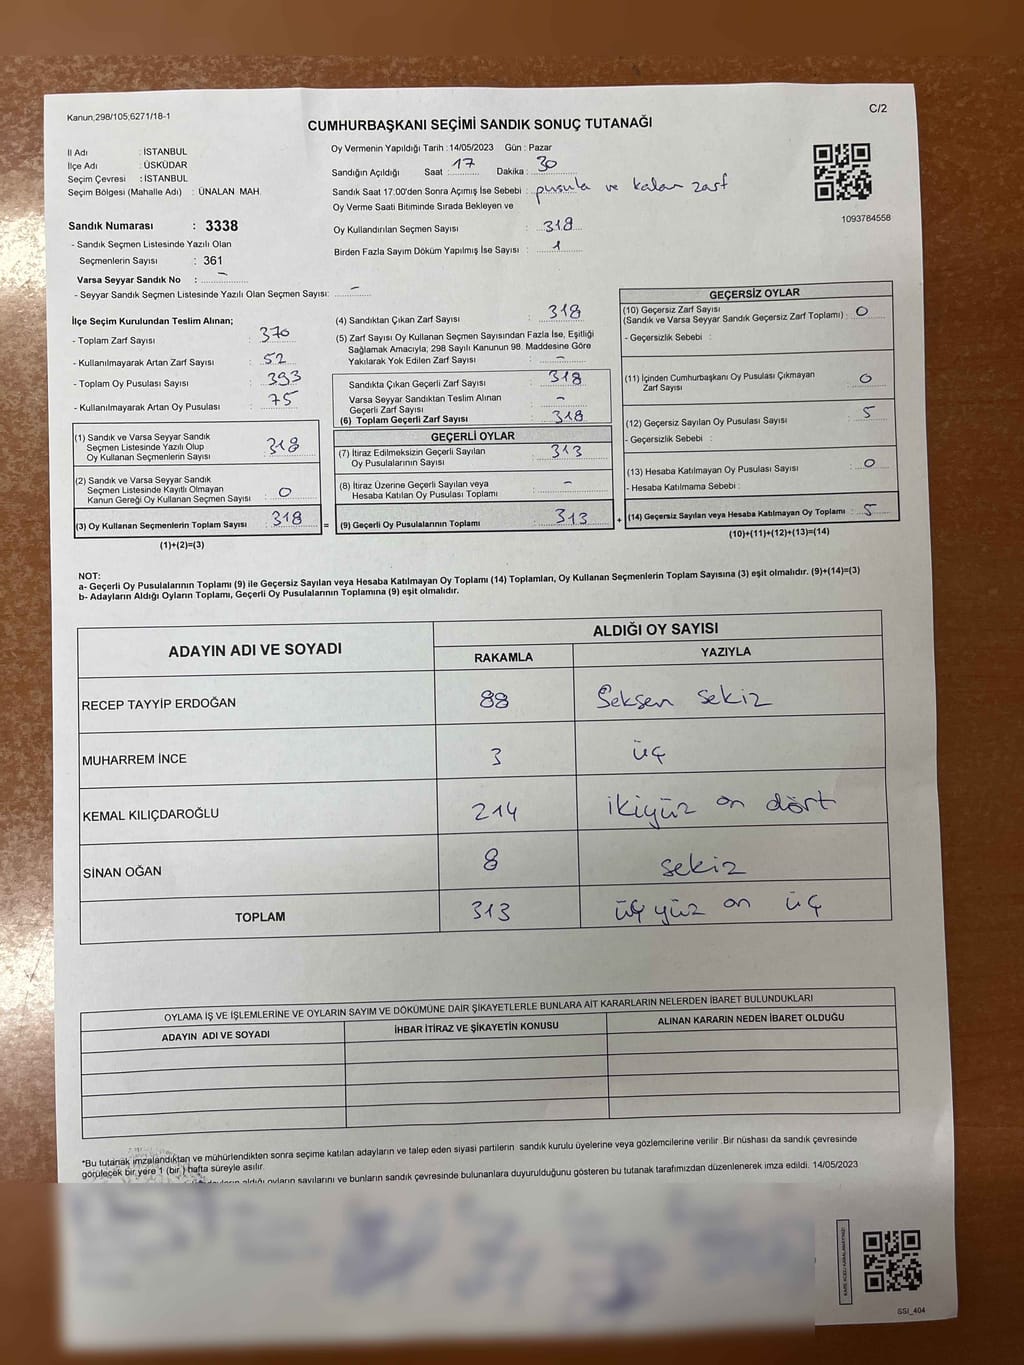 Kanun,298/105,6271/18-1
C/2
CUMHURBAŞKANI SEÇİMİ SANDIK SONUÇ TUTANAĞI
İl Adı : İSTANBUL
İlçe Adı : ÜSKÜDAR
Seçim Çevresi : İSTANBUL
Seçim Bölgesi (Mahalle Adı) : ÜNALAN MAH.
Sandık Numarası : 3338
- Sandık Seçmen Listesinde Yazılı Olan
Seçmenlerin Sayısı : 361
Varsa Seyyar Sandık No : –
- Seyyar Sandık Seçmen Listesinde Yazılı Olan Seçmen Sayısı: –
Oy Vermenin Yapıldığı Tarih :14/05/2023 Gün : Pazar
Sandığın Açıldığı Saat : 17 Dakika : 30
Sandık Saat 17.00'den Sonra Açımış İse Sebebi : pusula ve kalan zarf
Oy Verme Saati Bitiminde Sırada Bekleyen ve
Oy Kullandırılan Seçmen Sayısı : 318
Birden Fazla Sayım Döküm Yapılmış İse Sayısı : 1
1093784558
İlçe Seçim Kurulundan Teslim Alınan;
- Toplam Zarf Sayısı : 370
- Kullanılmayarak Artan Zarf Sayısı : 52
- Toplam Oy Pusulası Sayısı : 393
- Kullanılmayarak Artan Oy Pusulası : 75
(1) Sandık ve Varsa Seyyar Sandık
Seçmen Listesinde Yazılı Olup
Oy Kullanan Seçmenlerin Sayısı : 318
(2) Sandık ve Varsa Seyyar Sandık
Seçmen Listesinde Kayıtlı Olmayan
Kanun Gereği Oy Kullanan Seçmen Sayısı : 0
(3) Oy Kullanan Seçmenlerin Toplam Sayısı : 318
(1)+(2)=(3)
(4) Sandıktan Çıkan Zarf Sayısı : 318
(5) Zarf Sayısı Oy Kullanan Seçmen Sayısından Fazla İse, Eşitliği
Sağlamak Amacıyla; 298 Sayılı Kanunun 98. Maddesine Göre
Yakılarak Yok Edilen Zarf Sayısı : –
Sandıkta Çıkan Geçerli Zarf Sayısı : 318
Varsa Seyyar Sandıktan Teslim Alınan
Geçerli Zarf Sayısı : –
(6) Toplam Geçerli Zarf Sayısı : 318
GEÇERLİ OYLAR
(7) İtiraz Edilmeksizin Geçerli Sayılan
Oy Pusulalarının Sayısı : 313
(8) İtiraz Üzerine Geçerli Sayılan veya
Hesaba Katılan Oy Pusulası Toplamı : –
= (9) Geçerli Oy Pusulalarının Toplamı : 313 +
GEÇERSİZ OYLAR
(10) Geçersiz Zarf Sayısı
(Sandık ve Varsa Seyyar Sandık Geçersiz Zarf Toplamı) : 0
- Geçersizlik Sebebi :
(11) İçinden Cumhurbaşkanı Oy Pusulası Çıkmayan
Zarf Sayısı : 0
(12) Geçersiz Sayılan Oy Pusulası Sayısı : 5
- Geçersizlik Sebebi :
(13) Hesaba Katılmayan Oy Pusulası Sayısı : 0
- Hesaba Katılmama Sebebi :
(14) Geçersiz Sayılan veya Hesaba Katılmayan Oy Toplamı : 5
(10)+(11)+(12)+(13)=(14)
NOT:
a- Geçerli Oy Pusulalarının Toplamı (9) ile Geçersiz Sayılan veya Hesaba Katılmayan Oy Toplamı (14) Toplamları, Oy Kullanan Seçmenlerin Toplam Sayısına (3) eşit olmalıdır. (9)+(14)=(3)
b- Adayların Aldığı Oyların Toplamı, Geçerli Oy Pusulalarının Toplamına (9) eşit olmalıdır.
ADAYIN ADI VE SOYADI
ALDIĞI OY SAYISI
RAKAMLA YAZIYLA
RECEP TAYYİP ERDOĞAN 88 Seksen sekiz
MUHARREM İNCE 3 üç
KEMAL KILIÇDAROĞLU 214 ikiyüz on dört
SİNAN OĞAN 8 sekiz
TOPLAM 313 üç yüz on üç
OYLAMA İŞ VE İŞLEMLERİNE VE OYLARIN SAYIM VE DÖKÜMÜNE DAİR ŞİKAYETLERLE BUNLARA AİT KARARLARIN NELERDEN İBARET BULUNDUKLARI
ADAYIN ADI VE SOYADI İHBAR İTİRAZ VE ŞİKAYETİN KONUSU ALINAN KARARIN NEDEN İBARET OLDUĞU
*Bu tutanak imzalandıktan ve mühürlendikten sonra seçime katılan adayların ve talep eden siyasi partilerin sandık kurulu üyelerine veya gözlemcilerine verilir .Bir nüshası da sandık çevresinde
görülecek bir yere 1 (bir ) hafta süreyle asılır.
aldığı oyların sayılarını ve bunların sandık çevresinde bulunanlara duyurulduğunu gösteren bu tutanak tarafımızdan düzenlenerek imza edildi. 14/05/2023
SSI_404